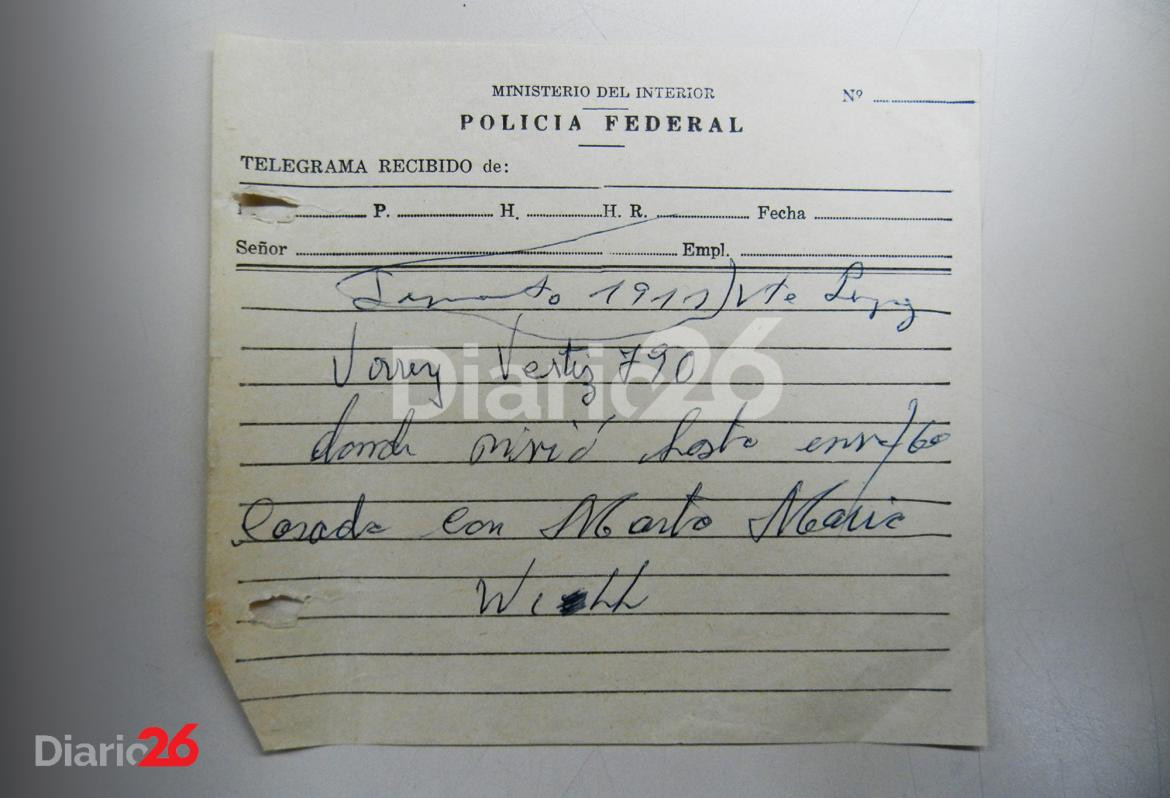 MINISTERIO DEL INTERIOR
Nº
POLICIA FEDERAL
TELEGRAMA RECIBIDO de:
P. H. H. R. Fecha
Señor Empl.
1911) Vte Lopez
Virrey Vertiz 790
Diario26
donde vivió hasta enro/60
Casado con Marta Maria
Diario26